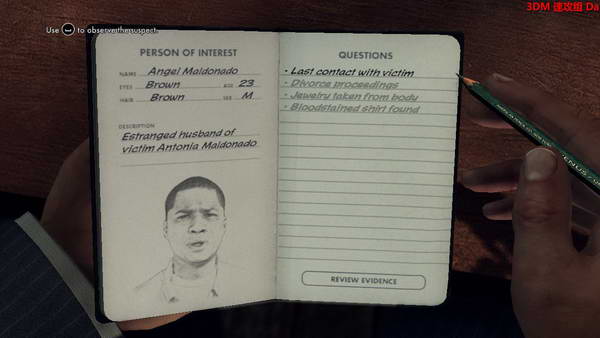 3DM 速攻组 Da
Use to observe the suspect.
PERSON OF INTEREST
NAME Angel Maldonado
EYES Brown AGE 23
HAIR Brown SEX M
DESCRIPTION
Estranged husband of
victim Antonia Maldonado
QUESTIONS
- Last contact with victim
- Divorce proceedings
- Jewelry taken from body
- Bloodstained shirt found
REVIEW EVIDENCE